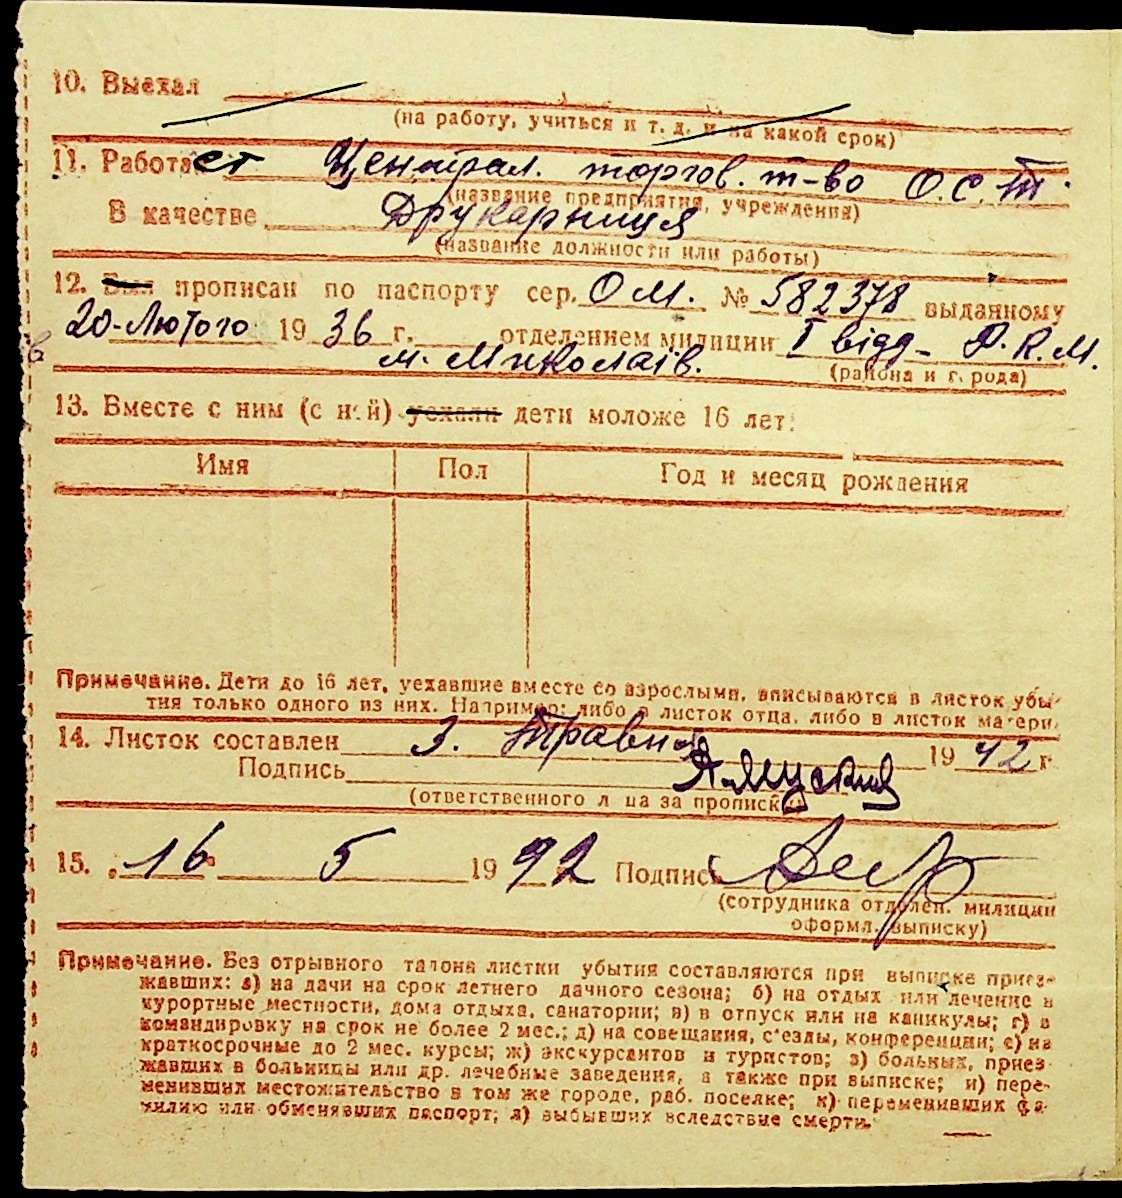 10. Выехал
(на работу, учиться и т. д. и на какой срок)
11. Работает Централ. торгов. т-во О.С.Т.
(название предприятия, учреждения)
В качестве Друкарниця
(название должности или работы)
12. Был прописан по паспорту сер. ОМ. № 582378 выданному
20-Лютого 1936 г. отделением милиции I відд- Р.К.М.
м. Миколаїв.
(района и города)
13. Вместе с ним (с ней) уехали дети моложе 16 лет:
Имя Пол Год и месяц рождения
Примечание. Дети до 16 лет, уехавшие вместе со взрослыми, вписываются в листок убы-
тия только одного из них. Например: либо в листок отца, либо в листок матери.
14. Листок составлен 3. Травня 1942 г
Подпись
(ответственного лица за прописку)
15. „16 5 1942 Подпись
(сотрудника отделен. милиции
оформл. выписку)
Примечание. Без отрывного талона листки убытия составляются при выписке приез-
жавших: а) на дачи на срок летнего дачного сезона; б) на отдых или лечение в
курортные местности, дома отдыха, санатории; в) в отпуск или на каникулы; г) в
командировку на срок не более 2 мес.; д) на совещания, с'езды, конференции; е) на
краткосрочные до 2 мес. курсы; ж) экскурсантов и туристов; з) больных, приез-
жавших в больницы или др. лечебные заведения, а также при выписке; и) пере-
менивших местожительство в том же городе, раб. поселке; к) переменивших фа-
милию или обменявших паспорт; л) выбывших вследствие смерти.